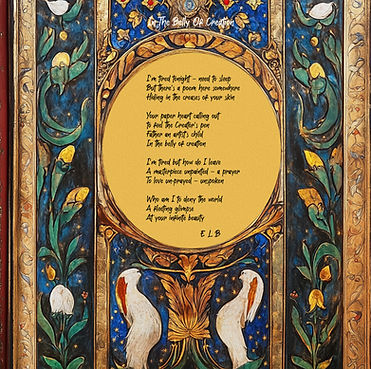 In The Belly Of Creation
I'm tired tonight – need to sleep
But there's a poem here somewhere
Hiding in the creases of your skin
Your paper heart calling out
To feel the Creator's pen
Father an artist's child
In the belly of creation
I'm tired but how do I leave
A masterpiece unpainted – a prayer
To love un-prayed – unspoken
Who am I to deny the world
A fleeting glimpse
At your infinite beauty
E L B